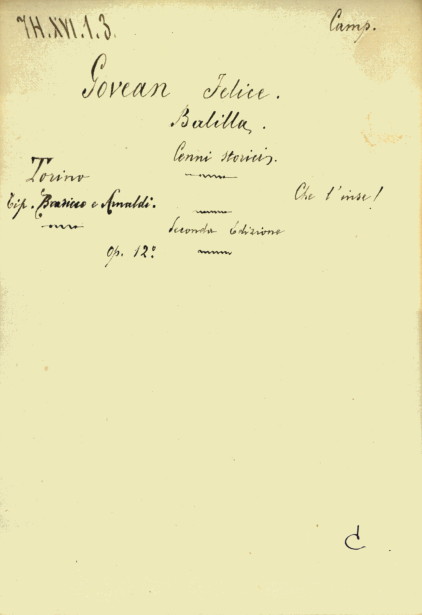 7H.XVI.1.3.
Camp.
Govean Felice.
Balilla.
Cenni storici.
Torino
Che l'inse!
Tip. e Arnaldi.
Seconda Edizione
op. 12º